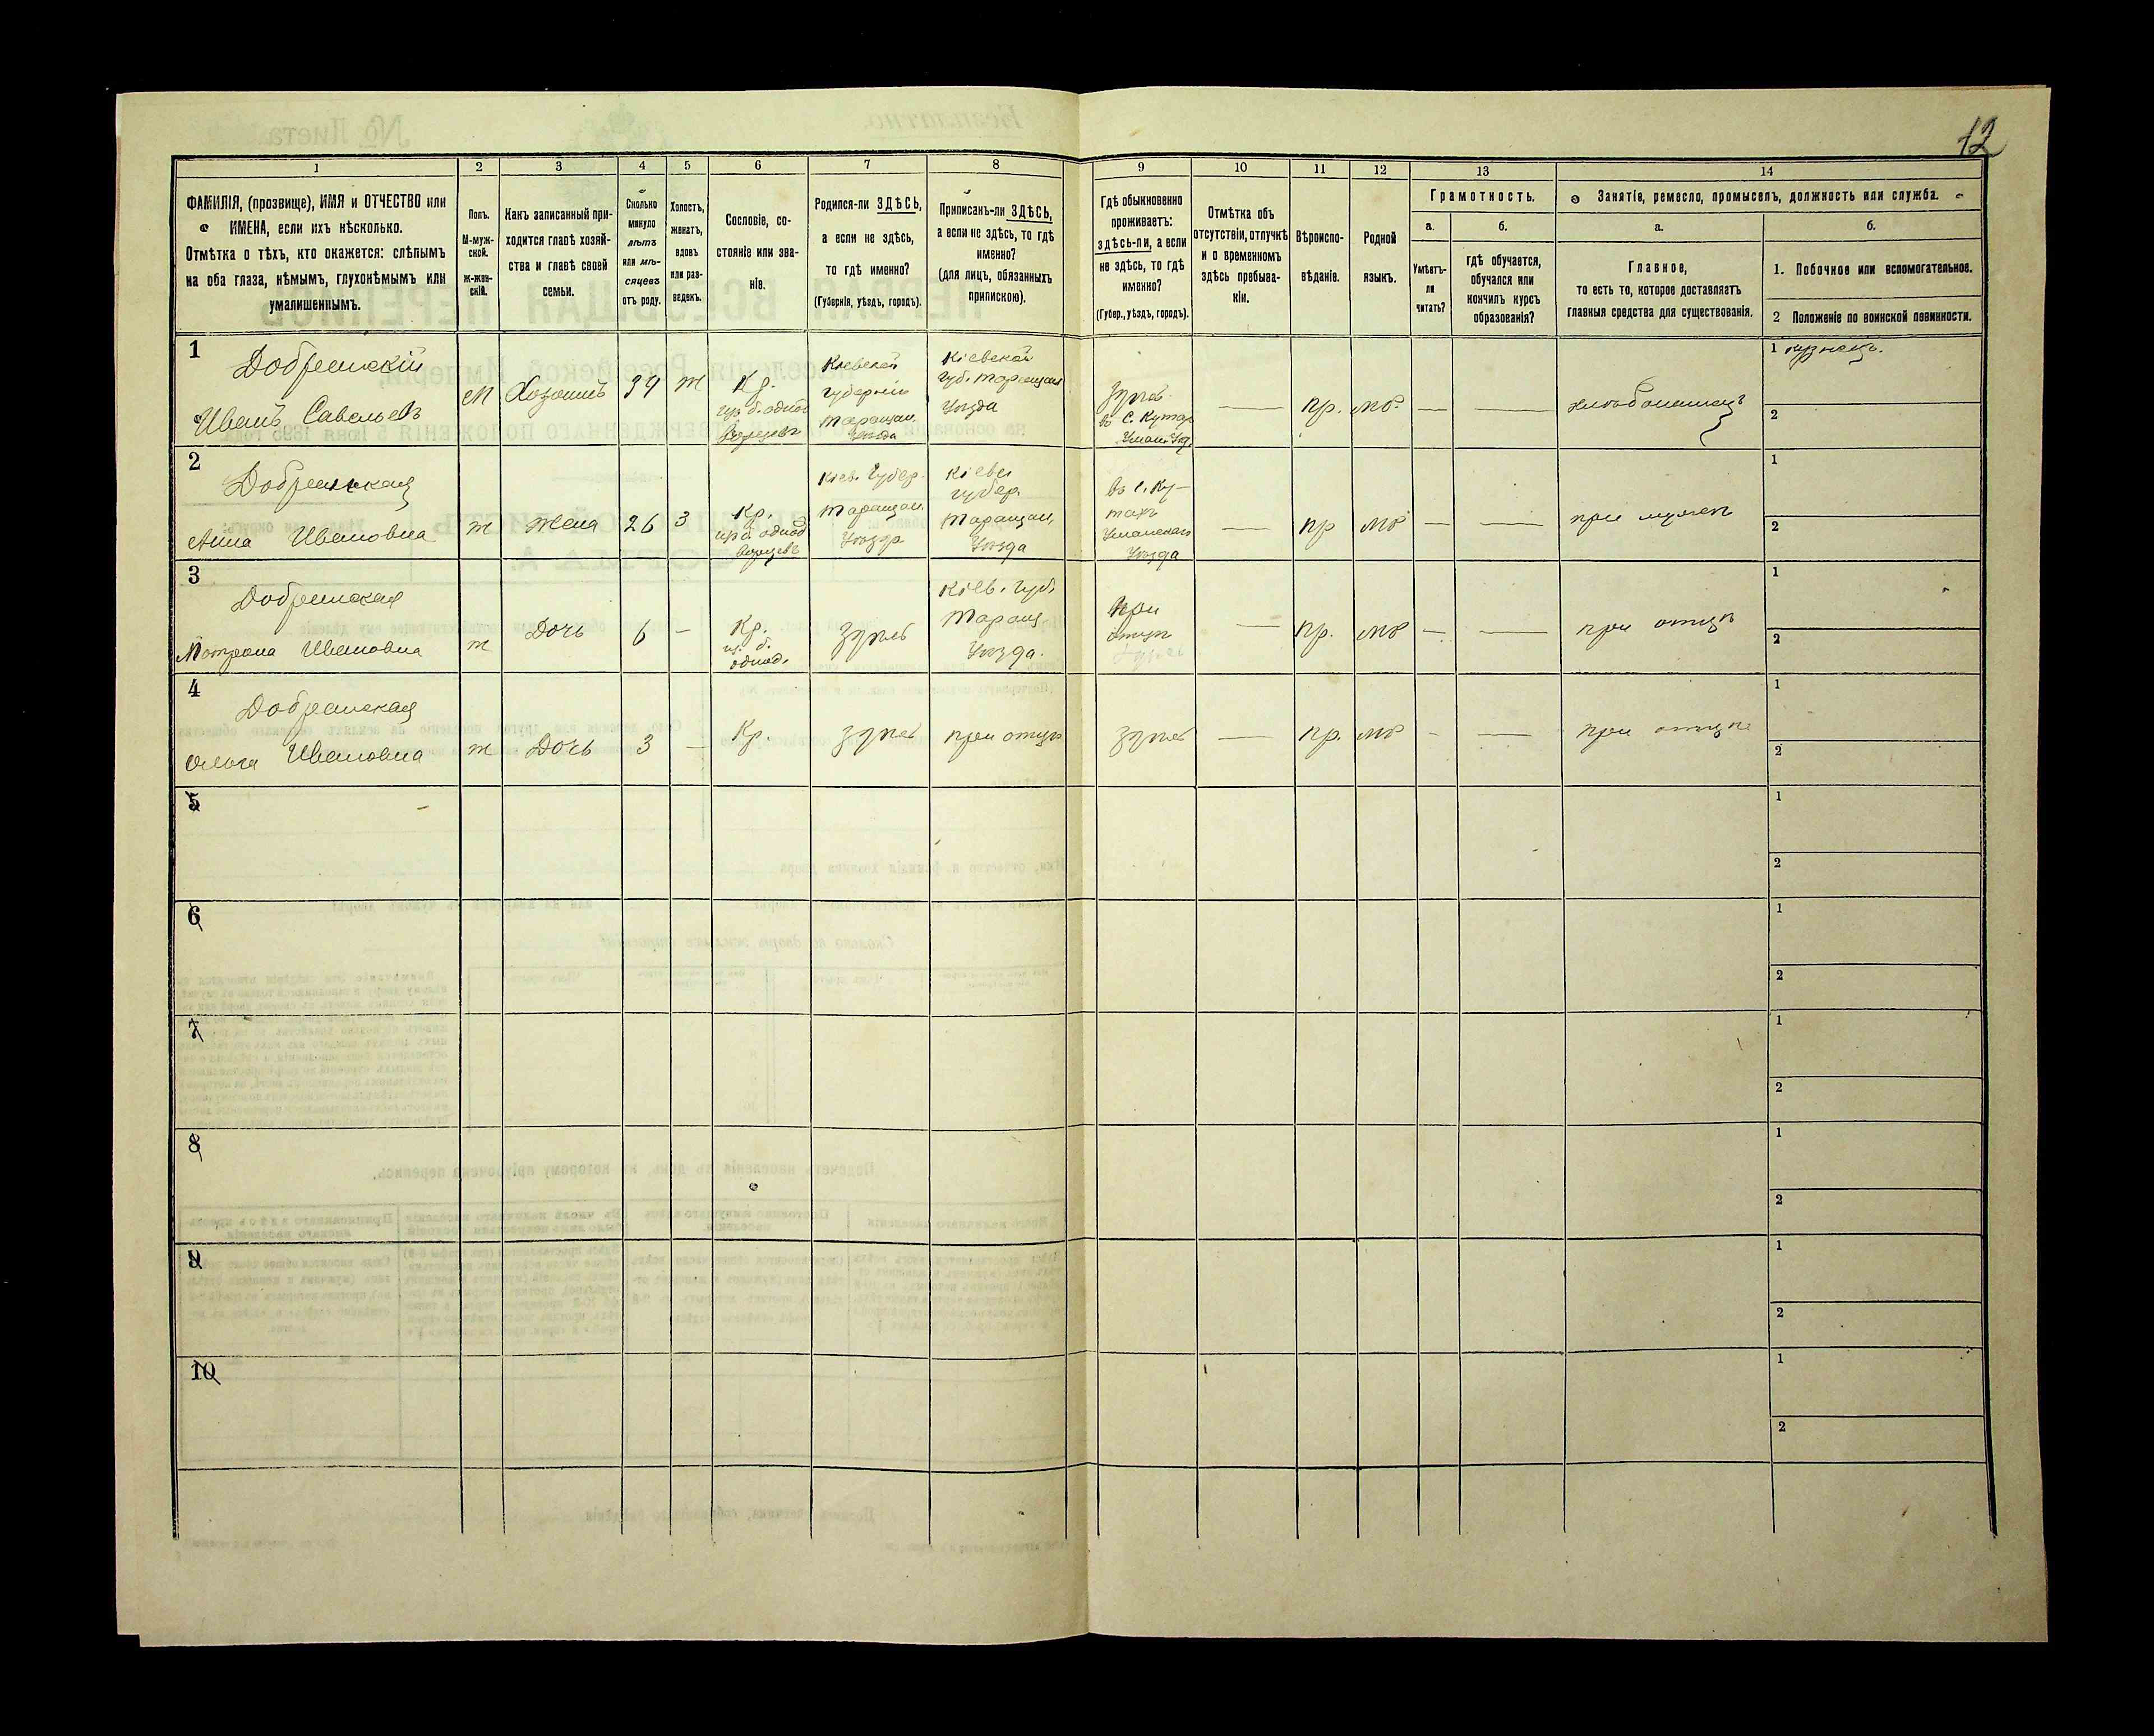 12
1 2 3 4 5 6 7 8 9 10 11 12 13 14
ФАМИЛІЯ, (прозвище), ИМЯ и ОТЧЕСТВО или
ИМЕНА, если ихъ нѣсколько.
Отмѣтка о тѣхъ, кто окажется: слѣпымъ
на оба глаза, нѣмымъ, глухонѣмымъ или
умалишеннымъ.
Полъ.
М-муж-
ской.
ж-жен-
скій.
Какъ записанный при-
ходится главѣ хозяй-
ства и главѣ своей
семьи.
Сколько
минуло
лѣтъ
или мѣ-
сяцевъ
отъ роду.
Холостъ,
женатъ,
вдовъ
или раз-
веденъ.
Сословіе, со-
стояніе или зва-
ніе.
Родился-ли ЗДѢСЬ,
а если не здѣсь,
то гдѣ именно?
(Губернія, уѣздъ, городъ).
Приписанъ-ли ЗДѢСЬ,
а если не здѣсь, то гдѣ
именно?
(для лицъ, обязанныхъ
припискою).
Гдѣ обыкновенно
проживаетъ:
здѣсь-ли, а если
не здѣсь, то гдѣ
именно?
(Губер., уѣздъ, городъ).
Отмѣтка объ
отсутствіи, отлучкѣ
и о временномъ
здѣсь пребыва-
ніи.
Вѣроиспо-
вѣданіе.
Родной
языкъ.
Грамотность.
а.
Умѣетъ-
ли
читать?
б.
гдѣ обучается,
обучался или
кончилъ курсъ
образованія?
Занятіе, ремесло, промыселъ, должность или служба.
а.
Главное,
то есть то, которое доставляетъ
главныя средства для существованія.
б.
1. Побочное или вспомогательное.
2 Положеніе по воинской повинности.
1
Добрянскій
Иванъ Савельевъ
М
Хозяинъ
34
ж
Кр.
из б. одно
дворцевъ
Кіевской
губерніи
Таращан.
Уѣзда
Кіевской
Губ. Таращан
Уѣзда
Здѣсь
в с. Кутах
Уман. Уѣз.
—
пр.
мр.
—
—
хлѣбопашецъ
1 кузнецъ.
2
2
Добрянская
Анна Ивановна
ж
Жена
26
з
Кр.
из б. однод
ворцевъ
Кіев. Губер.
Таращан.
Уѣзда
Кіевс
губер.
Таращан.
Уѣзда
въ с. Ку-
тахъ
Уманскаго
Уѣзда
—
пр
мр
—
—
при мужѣ
1
2
3
Добрянская
Мотрона Ивановна
ж
Дочь
6
—
Кр.
из. б.
однод.
Здѣсь
Кіев. Губ.
Таращ.
Уѣзда.
При
отцѣ
—
пр.
мр
—
—
при отцѣ
1
2
4
Добрянская
Ольга Ивановна
ж
Дочь
3
—
Кр.
Здѣсь
при отцѣ
Здѣсь
—
пр.
мр
-
—
при отцѣ
1
2
5
1
2
6
1
2
7
1
2
8
1
2
9
1
2
10
1
2